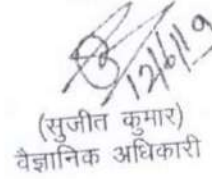 12/6/19
(सुजीत कुमार)
वैज्ञानिक अधिकारी